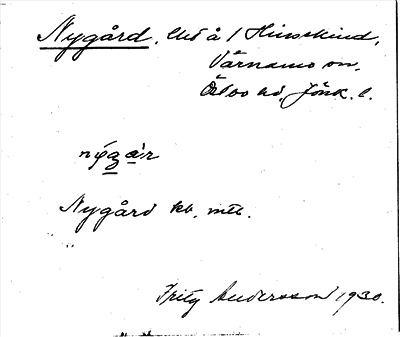 Nygård, Uto å / Hinsekind,
Värnamo sn,
Östbo hd, Jönk. l.
nýgàr
Nygård kb, mtl.
Fritz Andersson 1930.